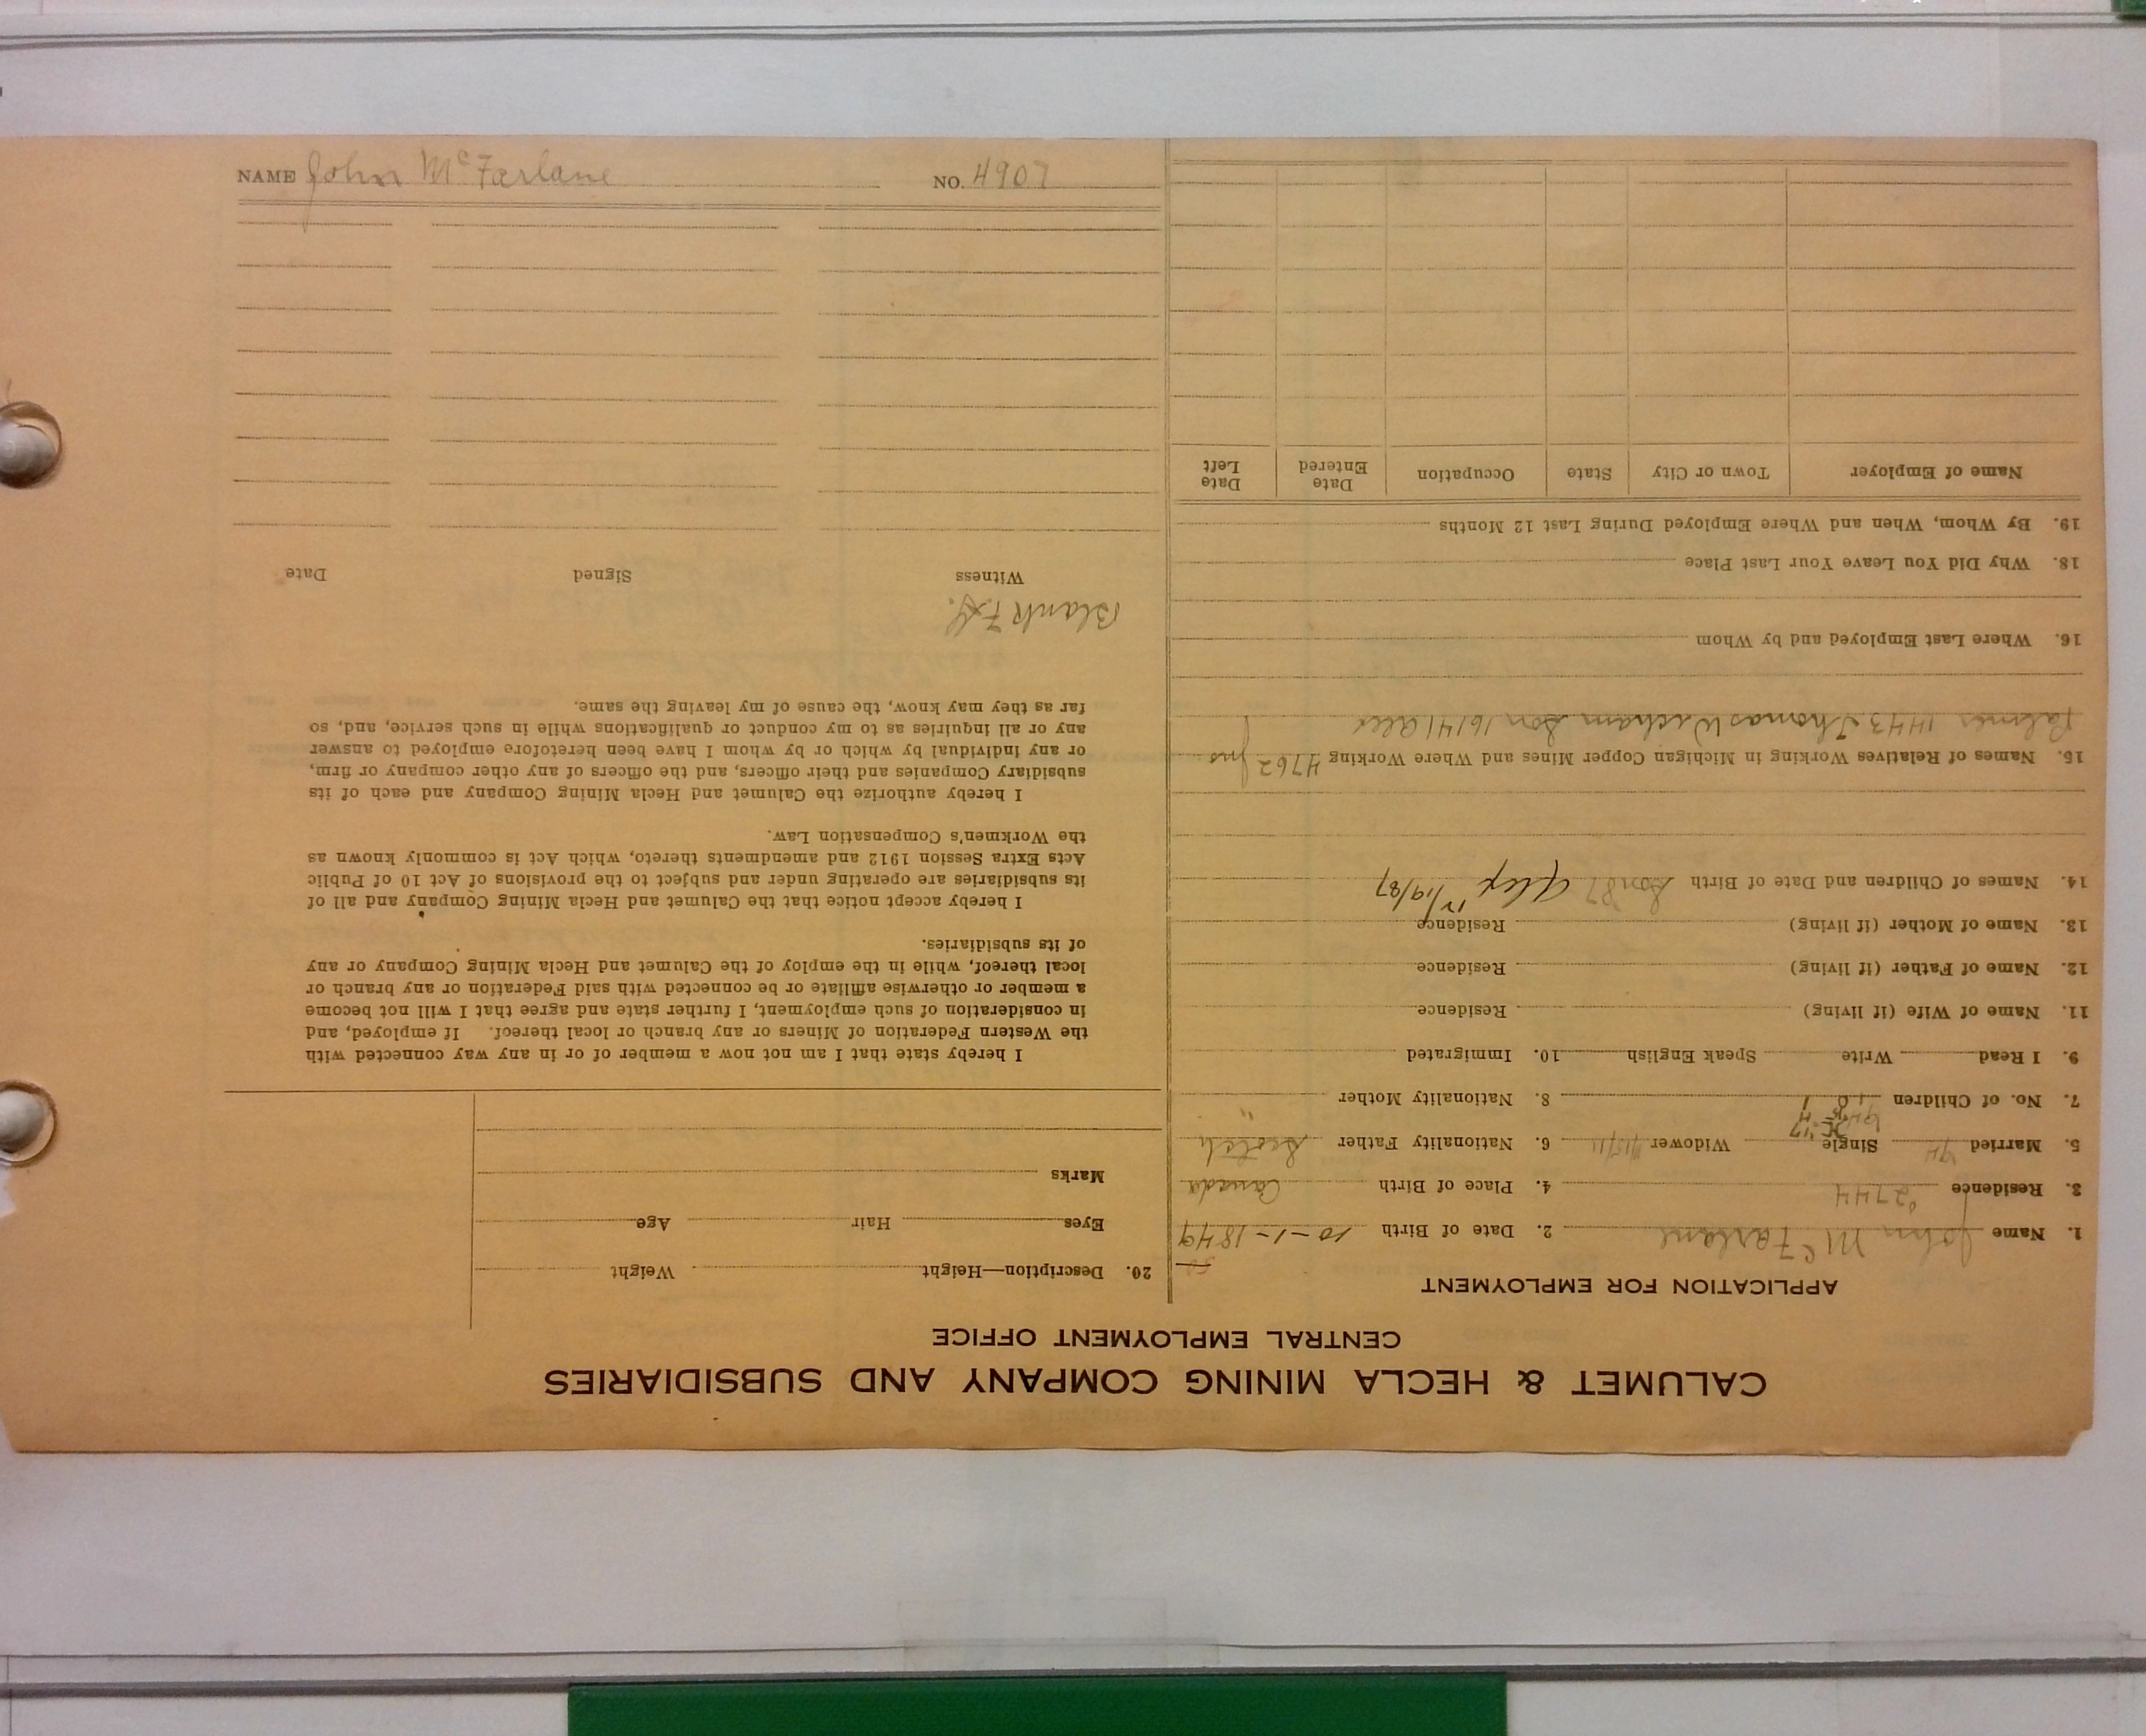 CALUMET & HECLA MINING COMPANY AND SUBSIDIARIES
CENTRAL EMPLOYMENT OFFICE
APPLICATION FOR EMPLOYMENT
1. Name John McFarlane 2. Date of Birth 10-1-1849
3. Residence 2744 4. Place of Birth Canada
5. Married Single Widower 6. Nationality Father Scotch
7. No. of Children 8. Nationality Mother "
9. I Read Write Speak English 10. Immigrated
11. Name of Wife (if living) Residence
12. Name of Father (if living) Residence
13. Name of Mother (if living) Residence
14. Names of Children and Date of Birth Son 87 Alex 12/19/87
15. Names of Relatives Working in Michigan Copper Mines and Where Working 4762 Jno
Palmer 1443 Thomas Wickham Son 16141 Alex
16. Where Last Employed and by Whom
18. Why Did You Leave Your Last Place
19. By Whom, When and Where Employed During Last 12 Months
Name of Employer Town or City State Occupation Date Entered Date Left
20. Description—Height Weight
Eyes Hair Age
Marks
I hereby state that I am not now a member of or in any way connected with
the Western Federation of Miners or any branch or local thereof. If employed, and
in consideration of such employment, I further state and agree that I will not become
a member or otherwise affiliate or be connected with said Federation or any branch or
local thereof, while in the employ of the Calumet and Hecla Mining Company or any
of its subsidiaries.
I hereby accept notice that the Calumet and Hecla Mining Company and all of
its subsidiaries are operating under and subject to the provisions of Act 10 of Public
Acts Extra Session 1912 and amendments thereto, which Act is commonly known as
the Workmen's Compensation Law.
I hereby authorize the Calumet and Hecla Mining Company and each of its
subsidiary Companies and their officers, and the officers of any other company or firm,
or any individual by which or by whom I have been heretofore employed to answer
any or all inquiries as to my conduct or qualifications while in such service, and, so
far as they may know, the cause of my leaving the same.
Blank
Witness Signed Date
NAME John McFarlane NO. 4907